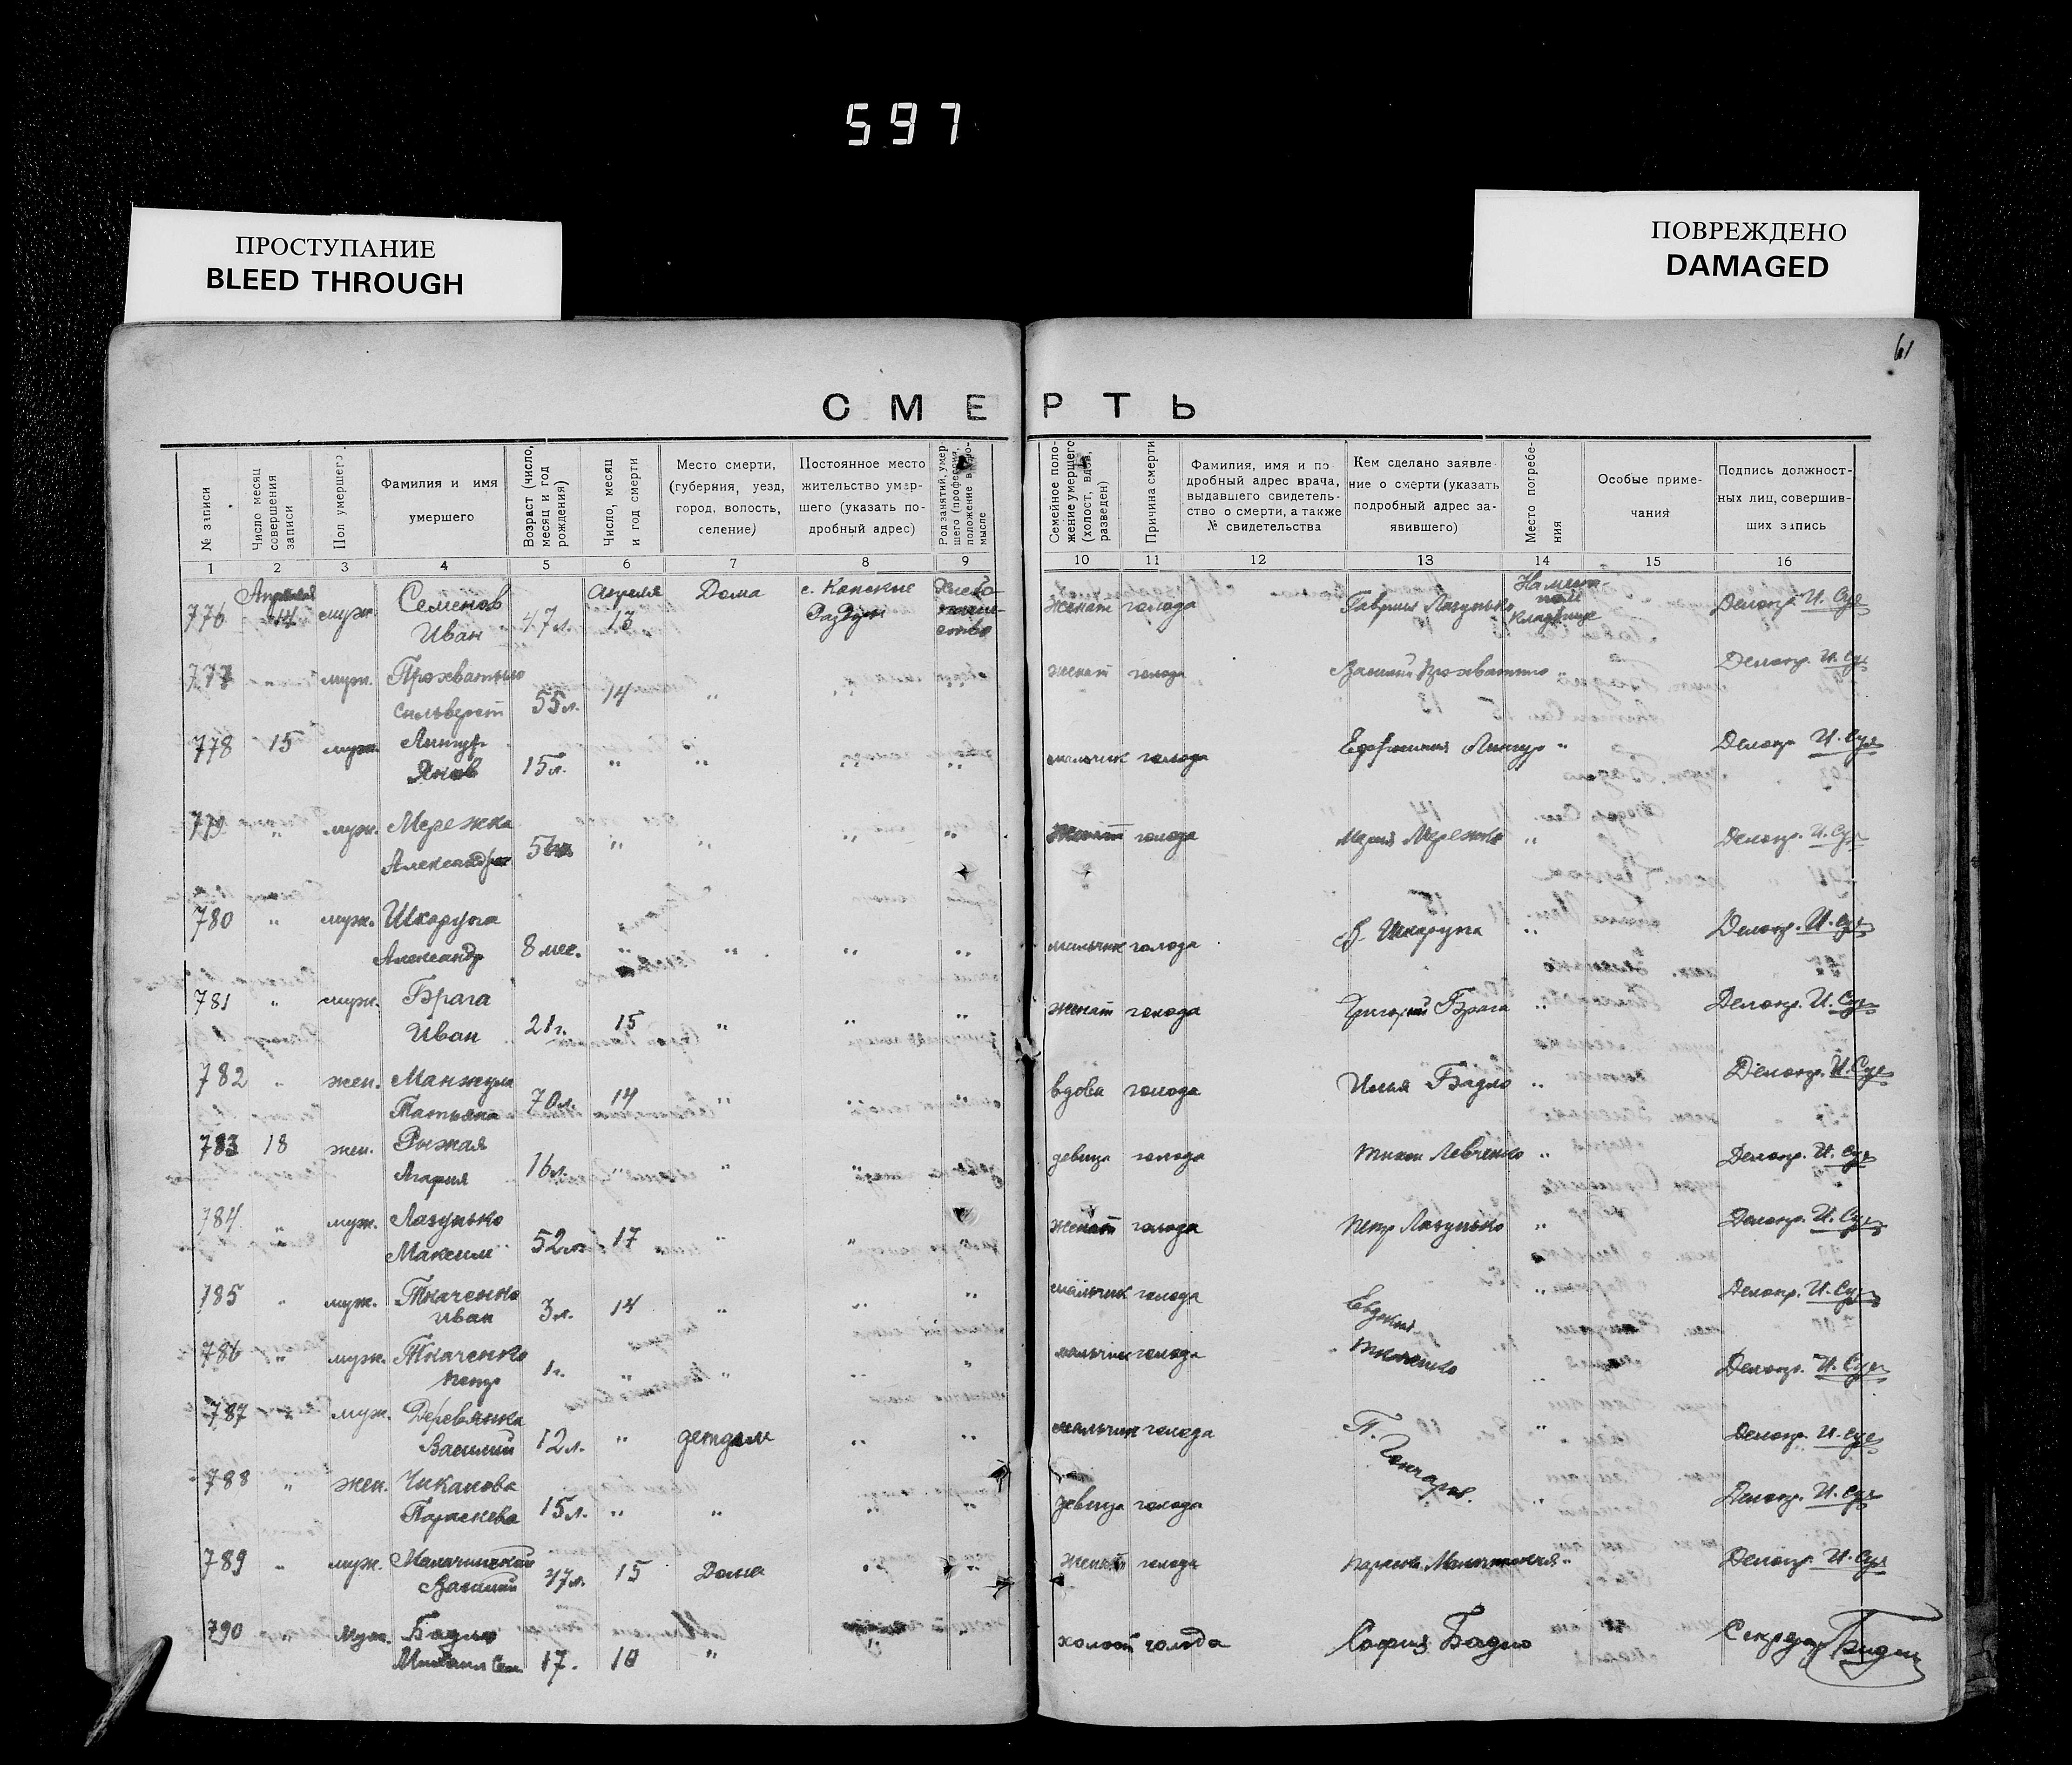 597
ПРОСТУПАНИЕ
BLEED THROUGH
ПОВРЕЖДЕНО
DAMAGED
61
СМЕРТЬ
№ записи
Число месяц совершения записи
Пол умершего
Фамилия и имя
умершего
Возраст (число, месяц и год рождения)
Число, месяц и год смерти
Место смерти,
(губерния, уезд,
город, волость,
селение)
Постоянное место
жительство умер-
шего (указать по-
дробный адрес)
Род занятий, умер-
шего (профессия,
положение в про-
мысле
Семейное поло-
жение умершего
(холост, вдов,
разведен)
Причина смерти
Фамилия, имя и по
дробный адрес врача,
выдавшего свидетель-
ство о смерти, а также
№ свидетельства
Кем сделано заявле
ние о смерти (указать
подробный адрес за-
явившего)
Место погребе-
ния
Особые приме-
чания
Подпись должност-
ных лиц, совершив-
ших запись
1 2 3 4 5 6 7 8 9 10 11 12 13 14 15 16
Апреля Семенов Апреля Дома с. Конские
776 14 муж. Иван 47 л. 13 Раздоры женат голода Гаврил Лазунько кладбище Делопр. И. Суд
777 " муж. Прохватько
55 л. 14 " " " женат голода Василий Прохватько " Делопр. И. Суд
778 15 муж. Линчур
Яков 15 л. " " " " мальчик голода Линчур " Делопр. И. Суд
779 " муж. Мережка
Александр " " " " голода Мария Мережко " Делопр. И. Суд
780 " муж. Шкарупа
Александр 8 мес. " " " " мальчик голода Шкарупа " Делопр. И. Суд
781 " муж. Брага
Иван 21 г. 15 " " " женат голода Григорий Брага " Делопр. И. Суд
782 " жен. Манжула
Татьяна 70 л. 14 " " " вдова голода Илья Бадло " Делопр. И. Суд
783 18 жен. Рыжая
Мария 16 л. " " " " девица голода Тихон Левченко " Делопр. И. Суд
784 " муж. Лазунько
Максим 52 л. 17 " " " женат голода Петр Лазунько " Делопр. И. Суд
785 " муж. Ткаченко
Иван 3 л. 14 " " " мальчик голода Евдокия " Делопр. И. Суд
786 " муж. Ткаченко
Петр 1 г. " " " " мальчик голода Ткаченко " Делопр. И. Суд
787 " муж. Деревянка
Василий 12 л. " детдом " " мальчик голода П. Гончаров. " Делопр. И. Суд
788 " жен. Чиканова
Параскева 15 л. " " " " девица голода " Делопр. И. Суд
789 " муж.
Василий 47 л. 15 Дома " " женат голода " Делопр. И. Суд
790 " муж. Бадло
Михаил Сем 17. 18 " " " холост голода София Бадло Секретарь